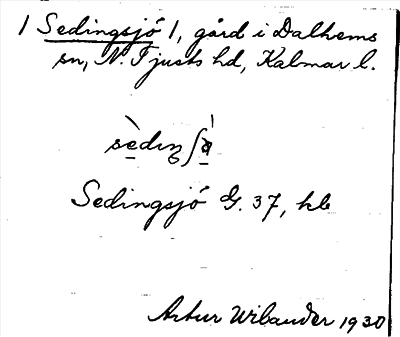 1 Sedingsjö 1, gård i Dalhems
sn, N. Tjusts hd, Kalmar l.
Sedingsjö G. 37, kb
Artur Wilander 1930